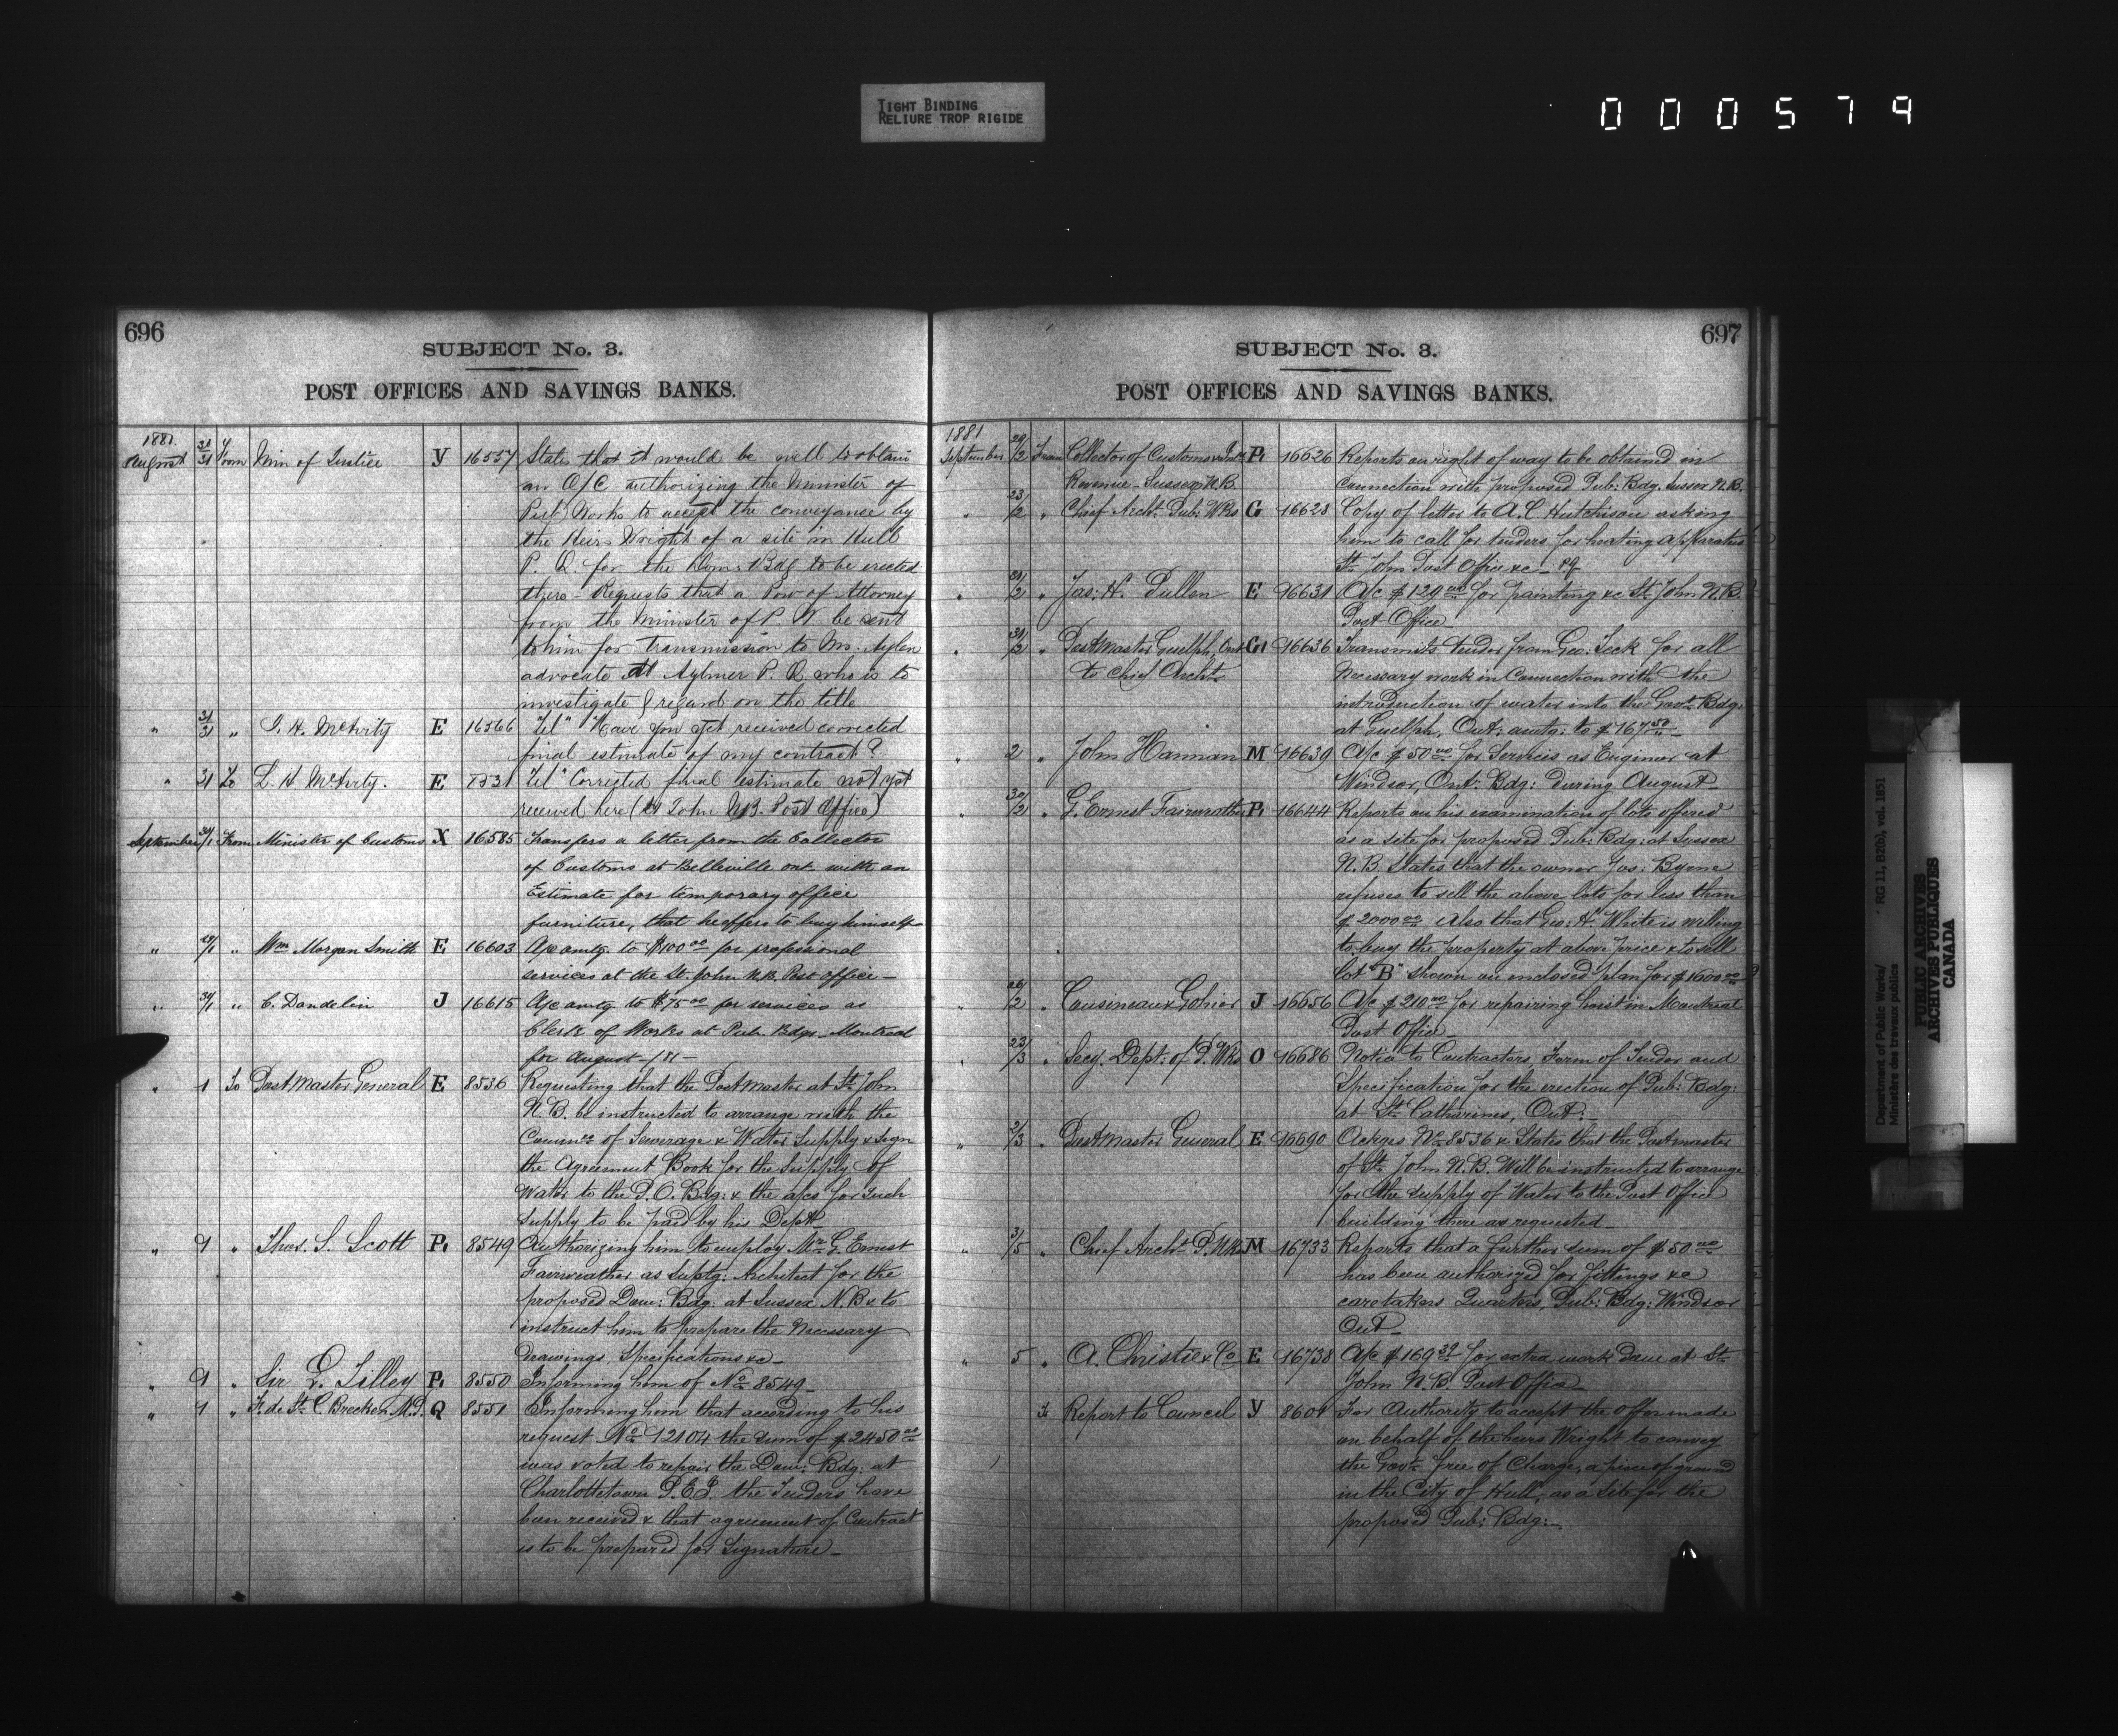 TIGHT BINDING
RELIURE TROP RIGIDE
000579
696
SUBJECT No. 3.
POST OFFICES AND SAVINGS BANKS.
1881.
August 31/31 From Min of Justice Y 16557 States that it would be well to obtain
an O/C authorizing the Minister of
Pub Works to accept the conveyance by
the Heirs Wright of a site in Hull
P. Q. for the Dom: Bdg to be erected
there - Requests that a Pow of Attorney
from the Minister of P. W be sent
to him for transmission to Mr. Aylen
advocate at Aylmer P. Q. who is to
investigate & regard on the title
" 31/31 " T. H. McAvity E 16566 Tel" Have you yet received corrected
final estimate of my contract?
" 31 To T. H McAvity. E 8531 Tel" Corrected final estimate not yet
received here (St John N.B. Post Office)
September 31/1 From Minister of Customs X 16585 Transfers a letter from the Collector
of Customs at Belleville Ont. with an
Estimate for temporary office
furniture, that he offers to buy himself
" 29/1 " Wm Morgan Smith E 16603 A/c amtg. to $100.00 for professional
services at the St. John N.B. Post office -
" 31/1 " C. Dandelin J 16615 A/c amtg to $75.00 for services as
Clerk of Works at Pub. Bdgs - Montreal
for August /81 -
" 1 To Postmaster General E 8536 Requesting that the Postmaster at St. John
N.B. be instructed to arrange with the
Commrs of Sewerage & Water Supply & sign
the Agreement Book for the Supply of
Water to the P.O. Bdg: & the a/cs for such
supply to be paid by his Dept -
" 1 " Thos. S. Scott P1 8549 Authorizing him to employ Mr. G. Ernest
Fairweather as Suptg: Architect for the
proposed Dom: Bdg. at Sussex N.B. & to
instruct him to prepare the necessary
drawings, Specifications &c -
" 1 " Sir L. Tilley P1 8550 Informing him of No 8549 -
" 1 " F. de St. C. Brecken. M.P. Q 8551 Informing him that according to his
request No 12104 the sum of $2450.00
was voted to repair the Dom: Bdg. at
Charlottetown P.E.I. the Tenders have
been received & that agreement of Contract
is to be prepared for Signature -
697
SUBJECT No. 3.
POST OFFICES AND SAVINGS BANKS.
1881
September 29/2 From Collector of Customs & Inld P1 16626 Reports on right of way to be obtained in
Revenue - Sussex N.B. connection with proposed Pub: Bdg. Sussex N.B.
" 23/2 " Chief Archt. Pub: Wks G 16628 Copy of letter to A. C. Hutchison asking
him to call for tenders for heating apparatus
St. John Post Office &c -
" 31/2 " Jas: H. Pullen E 16631 A/c $120.00 for painting &c St. John N.B.
Post Office -
" 31/2 " Postmaster Guelph, Ont G1 16636 Transmits tender from Geo: Feek for all
to Chief Archt. Necessary work in connection with the
introduction of water into the Govt. Bdg:
at Guelph, Ont: amtg: to $167.50 -
" 2 " John Hannan M 16639 A/c $50.00 for Services as Engineer at
Windsor, Ont. Bdg: during August -
" 30/2 " G. Ernest Fairweather P1 16644 Reports on his examination of lots offered
as a site for proposed Pub: Bdg: at Sussex
N.B. States that the owner Jas: Byrne
refuses to sell the above lots for less than
$2000.00 Also that Geo: H. White is willing
to buy the property at above price & to sell
lot "B" shown on enclosed plan for $1600.00
" 26/2 " Cousineau & Gohier J 16656 A/c $210.00 for repairing hoist in Montreal
Post Office
" 23/3 " Secy. Dept: of P. Wks O 16686 Notice to Contractors, Form of Tender and
Specification for the erection of Pub: Bdg:
at St. Catharines, Ont: -
" 2/3 " Postmaster General E 16690 Ackges No 8536 & States that the Postmaster
of St. John N.B. Will be instructed to arrange
for the supply of Water to the Post Office
building there as requested -
" 3/5 " Chief Archt. P. Wks M 16733 Reports that a further sum of $50.00
has been authorized for fittings &c
caretakers Quarters, Pub: Bdg: Windsor
Ont -
" 5 " A. Christie & Co E 16738 A/c $169.39 for extra work done at St.
John N.B. Post Office -
To Report to Council Y 8601 For Authority to accept the offer made
on behalf of the heirs Wright to convey
the Govt. free of Charge, a piece of ground
in the City of Hull, as a Site for the
proposed Pub: Bdg: -
Department of Public Works/
Ministère des travaux publics
RG 11, B2(b), vol. 1851
PUBLIC ARCHIVES
ARCHIVES PUBLIQUES
CANADA